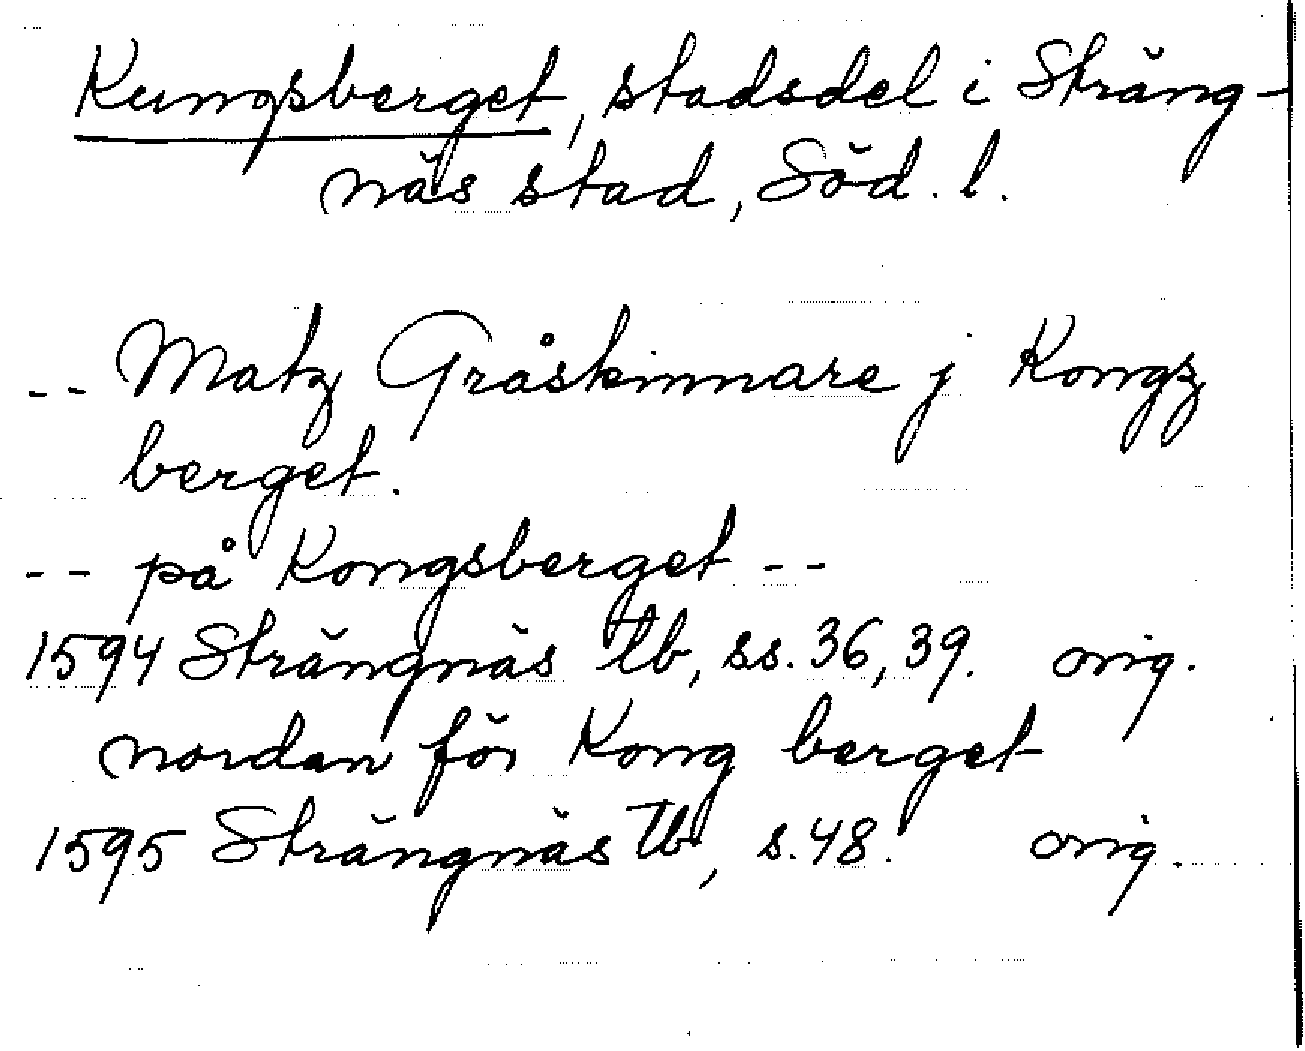 Kungsberget, stadsdel i Sträng-
näs stad, Söd. l.
-- Matz Gråskinnare j Kongz
berget.
-- på Kongsberget --
1594 Strängnäs tb, ss. 36, 39. orig.
nordan för Kong berget
1595 Strängnäs tb, s. 48. orig.